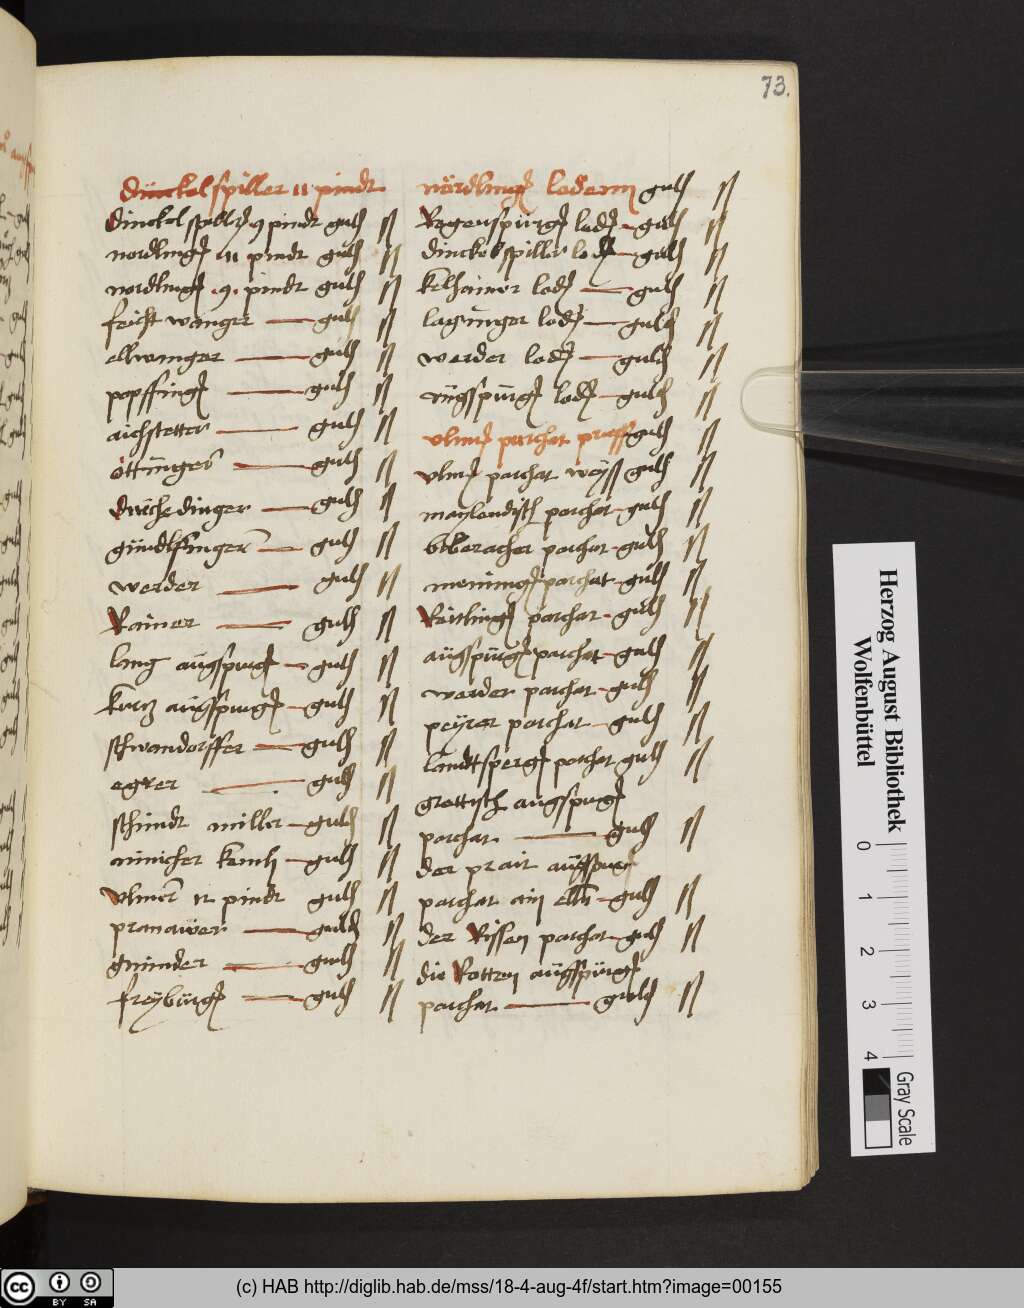 73.
Dinckelspiller 11 pindt
Dinckelspiller 9 pindt guld
nordling 11 pindt guld
nordling .9. pindt guld
feicht wanger guld
ellwanger guld
popffing guld
aichstetter guld
öttinger guld
guld
gündlfinger guld
werder guld
Rainer guld
lang augspurg guld
kurcz augspurg guld
schwandorffer guld
egrer guld
schindt miller guld
guld
vlmer 12 pindt guld
pranawer guld
gminder guld
freybürg guld
nördling loderm guld
Regenspürg lod guld
dinckelspiller lod guld
kelhaimer lod guld
lauginger lod guld
werder lod guld
lod guld
vlmer parchat guld
vlmer parchat weyss guld
maylendisch parchat guld
biberacher parchat guld
mening parchat guld
Reitling parchat guld
augspürg parchat guld
werder parchat guld
peyrer parchat guld
landtsperg parchat guld
grettisch augspurg
parchat guld
der prait augspurg
parchat ain elln guld
der Rissen parchat guld
die Rotten augspürg
parchat guld
Herzog August Bibliothek
Wolfenbüttel
0 1 2 3 4
Gray Scale
cc BY SA
(c) HAB http://diglib.hab.de/mss/18-4-aug-4f/start.htm?image=00155